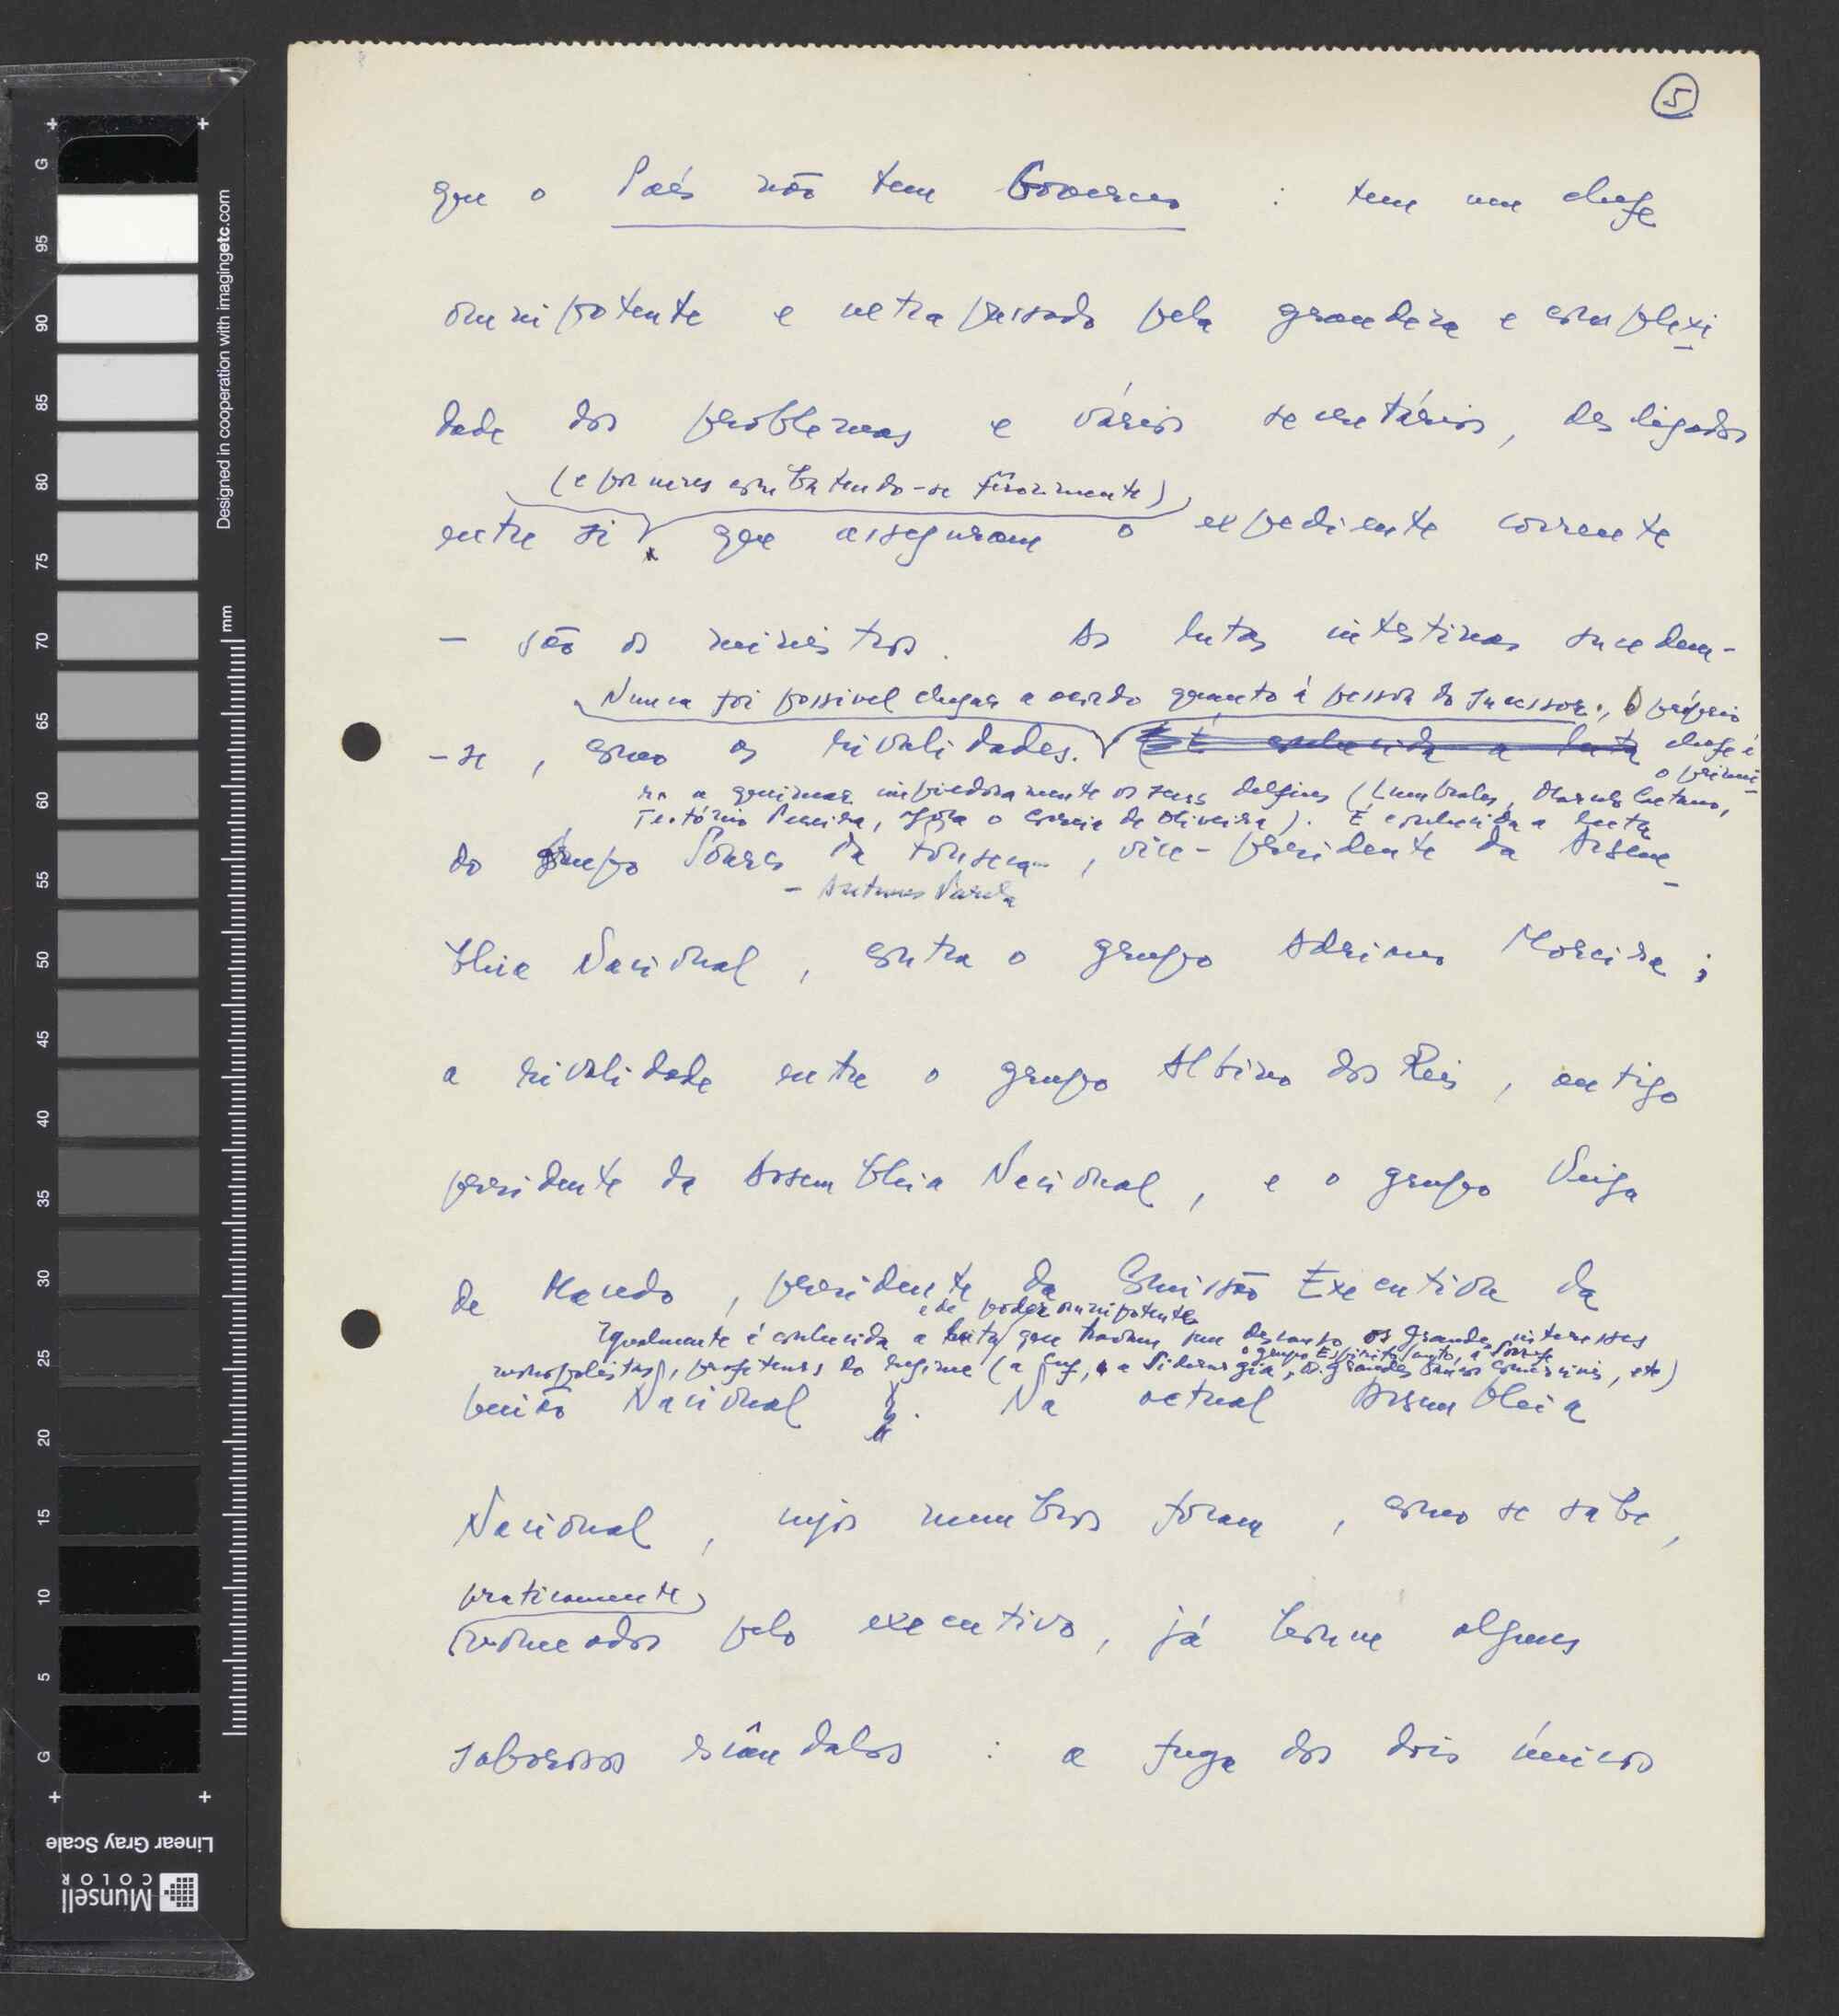 5
que o País não tem Governo : tem um chefe
omnipotente e ultrapassado pela grandeza e complexi
dade dos problemas e vários secretários, desligados
(e por vezes combatendo-se ferozmente)
entre si que asseguram o expediente corrente
— são os ministros. As lutas intestinas sucedem-
Nunca foi possivel chegar a acordo quanto à pessoa do sucessor., O próprio
-se, como as rivalidades. É conhecida a luta chefe é
o primei
ro a queimar impiedosamente os seus delfins (Lumbrales, Marcelo Caetano,
Teotónio Pereira, agora o Correia de Oliveira). É conhecida a luta
do grupo Soares da Fonseca, vice-presidente da Assem
- Antunes Varela
bleia Nacional, contra o grupo Adriano Moreira;
a rivalidade entre o grupo Albino dos Reis, antigo
presidente da Assembleia Nacional, e o grupo Veiga
de Macedo, presidente da Comissão Executiva da
e de poder omnipotente
Igualmente é conhecida a luta que travam sem descanso os grandes interesses
o grupo Espírito Santo, a Sonefe
monopolistas, profiteurs do regime (a Cuf, a Siderurgia, os grandes bancos comerciais, etc)
União Nacional. Na actual Assembleia
Nacional, cujos membros foram, como se sabe,
praticamente
nomeados pelo executivo, já houve alguns
saborosos escândalos : a fuga dos dois únicos